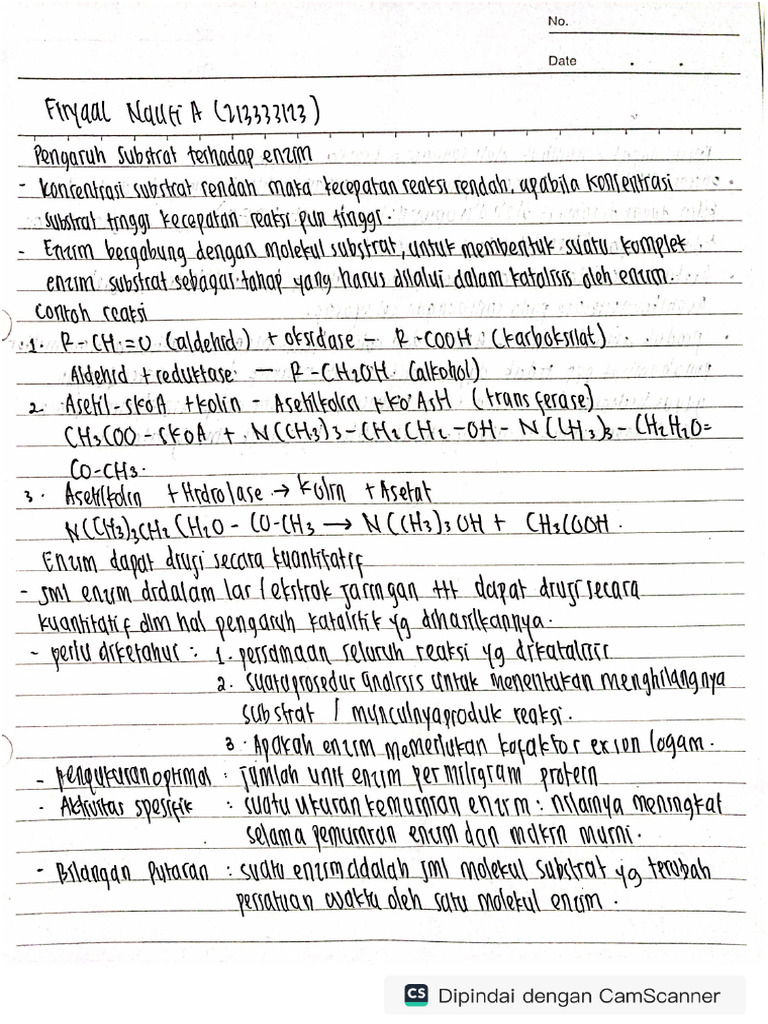 No.
Date . .
Firyaal Nauti A (213333123)
Pengaruh substrat terhadap enzim
- Konsentrasi substrat rendah maka kecepatan reaksi rendah, apabila konsentrasi
substrat tinggi kecepatan reaksi pun tinggi.
- Enzim bergabung dengan molekul substrat, untuk membentuk suatu komplek
enzim substrat sebagai tahap yang harus dilalui dalam katalisis oleh enzim.
Contoh reaksi
1. R-CH=O (aldehid) + oksidase - R-COOH (karboksilat)
Aldehid + reduktase - R-CH2OH (alkohol)
2. Asetil-SKoA + kolin - Asetilkolin + Ko AsH (transferase)
CH3COO-SKoA + N(CH3)3-CH2CH2-OH - N(CH3)3-CH2H2O=
CO-CH3.
3. Asetilkolin + Hidrolase → kolin + Asetat
N(CH3)3CH2CH2O-CO-CH3 → N(CH3)3OH + CH3COOH.
Enzim dapat diuji secara kuantitatif
- Jml enzim didalam lar / ekstrak jaringan ttt dapat diuji secara
kuantitatif dlm hal pengaruh katalitik yg dihasilkannya.
- perlu diketahui : 1. persamaan seluruh reaksi yg dikatalisis
2. suatu prosedur analisis untuk menentukan menghilangnya
substrat / munculnya produk reaksi.
3. Apakah enzim memerlukan kofaktor ex ion logam.
- pengukuran optimal : jumlah unit enzim per miligram protein
- Aktivitas spesifik : suatu ukuran kemurnian enzim : nilainya meningkat
selama pemurnian enzim dan makin murni.
- Bilangan Putaran : suatu enzim adalah jml molekul substrat yg terubah
persatuan waktu oleh satu molekul enzim.
CS Dipindai dengan CamScanner